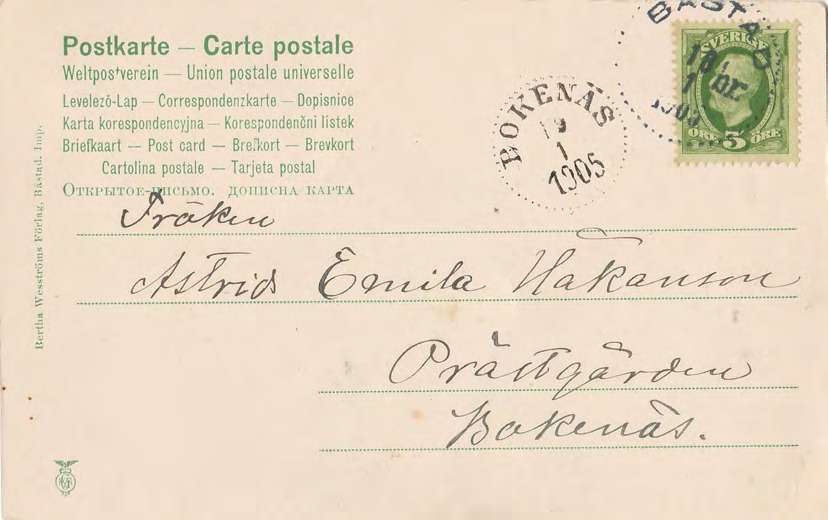 Postkarte — Carte postale
Weltpostverein — Union postale universelle
Levelező-Lap — Correspondenzkarte — Dopisnice
Karta korespondencyjna — Korespondenčni listek
Briefkaart — Post card — Brefkort — Brevkort
Cartolina postale — Tarjeta postal
Открытое-письмо. дописна карта
BOKENÄS
19
1
1905
BÅSTAD
18
1
1905
SVERIGE
ÖRE 5 ÖRE
Bertha Wesströms Förlag, Båstad. Imp.
Fröken
Astrid Emilia Håkanson
Prästgården
Bokenäs.